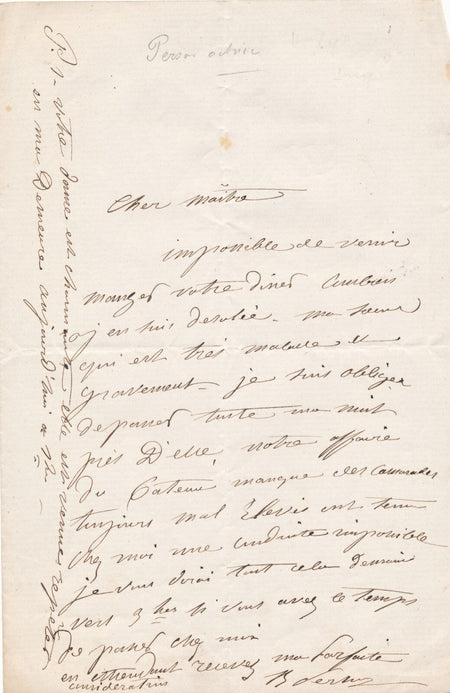 Cher Maître
impossible de venir
manger votre diner
j'en suis desolée - ma soeur
qui est très malade et
gravement - je suis obligée
de passer toute ma nuit
près D'elle, notre affaire
du manque des camarades
toujours mal Elevés ont tenu
chez moi une conduite impossible
je vous dirai tout cela demain
vers 3 hrs si vous avez le temps
de passer chez moi
en attendant recevez ma parfaite
consideration
P.S - votre dame est charmante elle est venue
en ma Demeure aujourd'hui